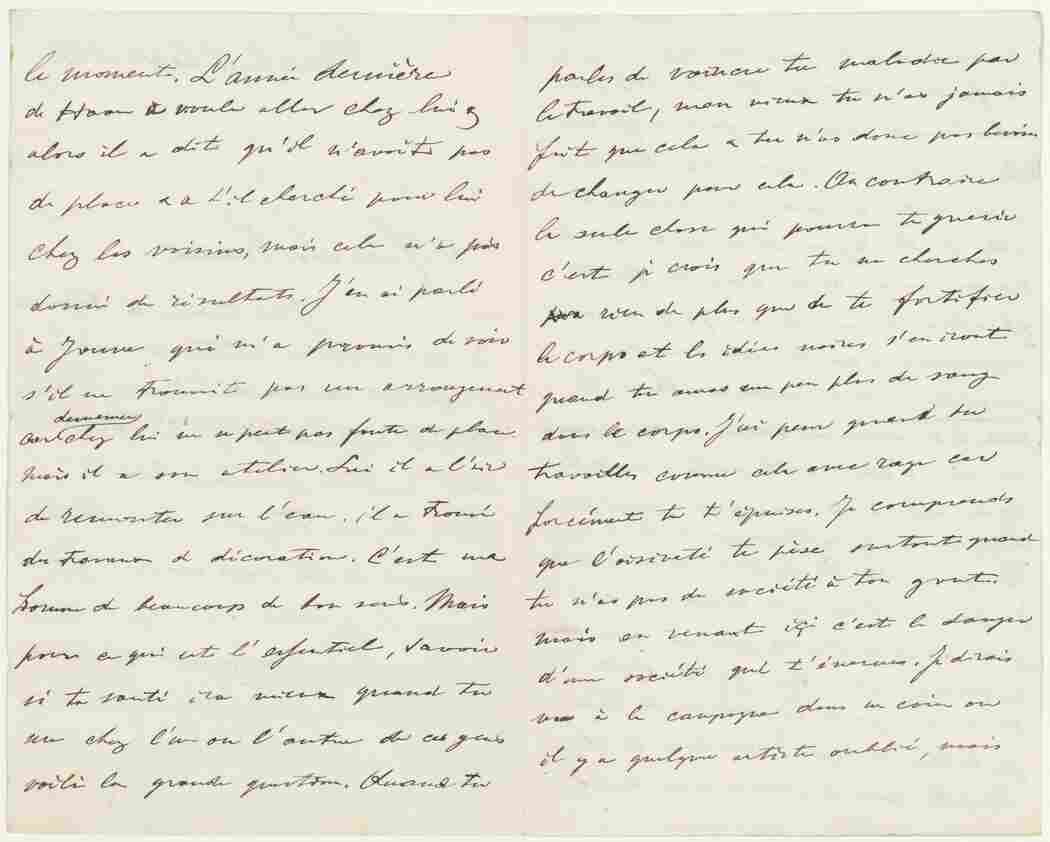 le moment. L'année dernière
de Haan a voulu aller chez lui &
alors il a dit qu'il n'avait pas
de place & a t.il cherché pour lui
chez les voisins, mais cela n'a pas
donné de résultats. J'en ai parlé
à Jouve qui m'a promis de voir
s'il ne trouvait pas un arrangement
chez lui il n'y a pas faute de place
mais il a son atelier. Lui il a l'air
de remonter sur l'eau. il a trouvé
des travaux de décoration. C'est un
homme de beaucoup de bon sens. Mais
pour ce qui est l'essentiel, savoir
si ta santé ira mieux quand tu
chez l'un ou l'autre de ces gens
voilà la grande question. Quand tu
parles de vaincre ta maladie par
le travail, mon vieux tu n'as jamais
fait que cela & tu n'as donc pas besoin
de changer pour cela. Au contraire
la seule chose qui pourra te guérir
c'est je crois que tu ne cherches
rien de plus que de te fortifier
le corps et les idées noires s'en iront
quand tu auras un peu plus de sang
dans le corps. J'ai peur quand tu
travailles comme cela avec rage car
forcément tu t'épuises. Je comprends
que l'oisiveté te pèse surtout quand
tu n'as pas de société à ton goût
mais en venant ici c'est le danger
d'une société qui t'énerves. Je dirais
vas à la campagne dans un coin ou
il y a quelque artiste oublié, mais